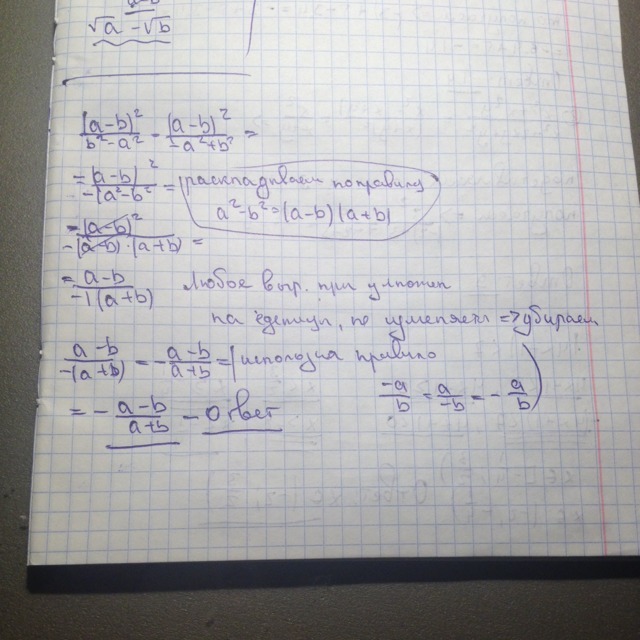 √a - √b
(a-b)² / b²-a² = (a-b)² / -a²+b² =
= (a-b)² / -(a²-b² = раскладываем по правилу
a²-b²=(a-b)(a+b)
= (a-b)² / -(a-b)·(a+b) =
= a-b / -1(a+b) Любое выр. при умножен
на единиц. не изменяется => убираем
a-b / -(a+b) = - a-b / a+b = | используя правило
-a / b = a / -b = - a / b )
= - a-b / a+b - ответ